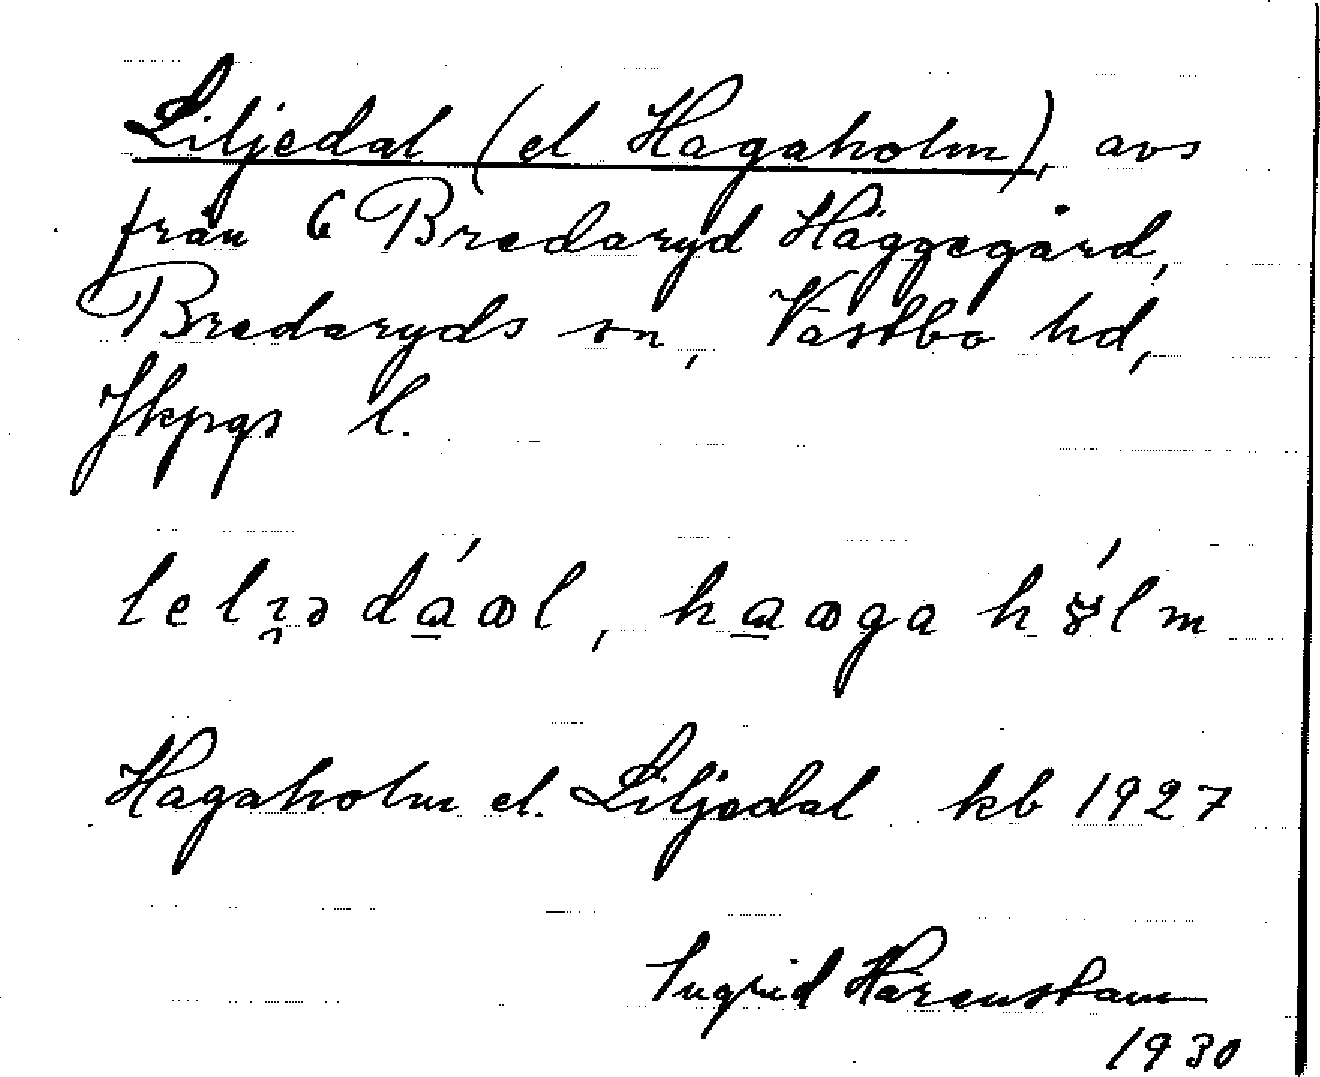 Liljedal (el Hagaholm), avs
från 6 Bredaryd Häggegård,
Bredaryds sn, Västbo hd,
Jkpgs l.
Hagaholm el. Liljedal kb 1927
Ingrid Härenstam
1930